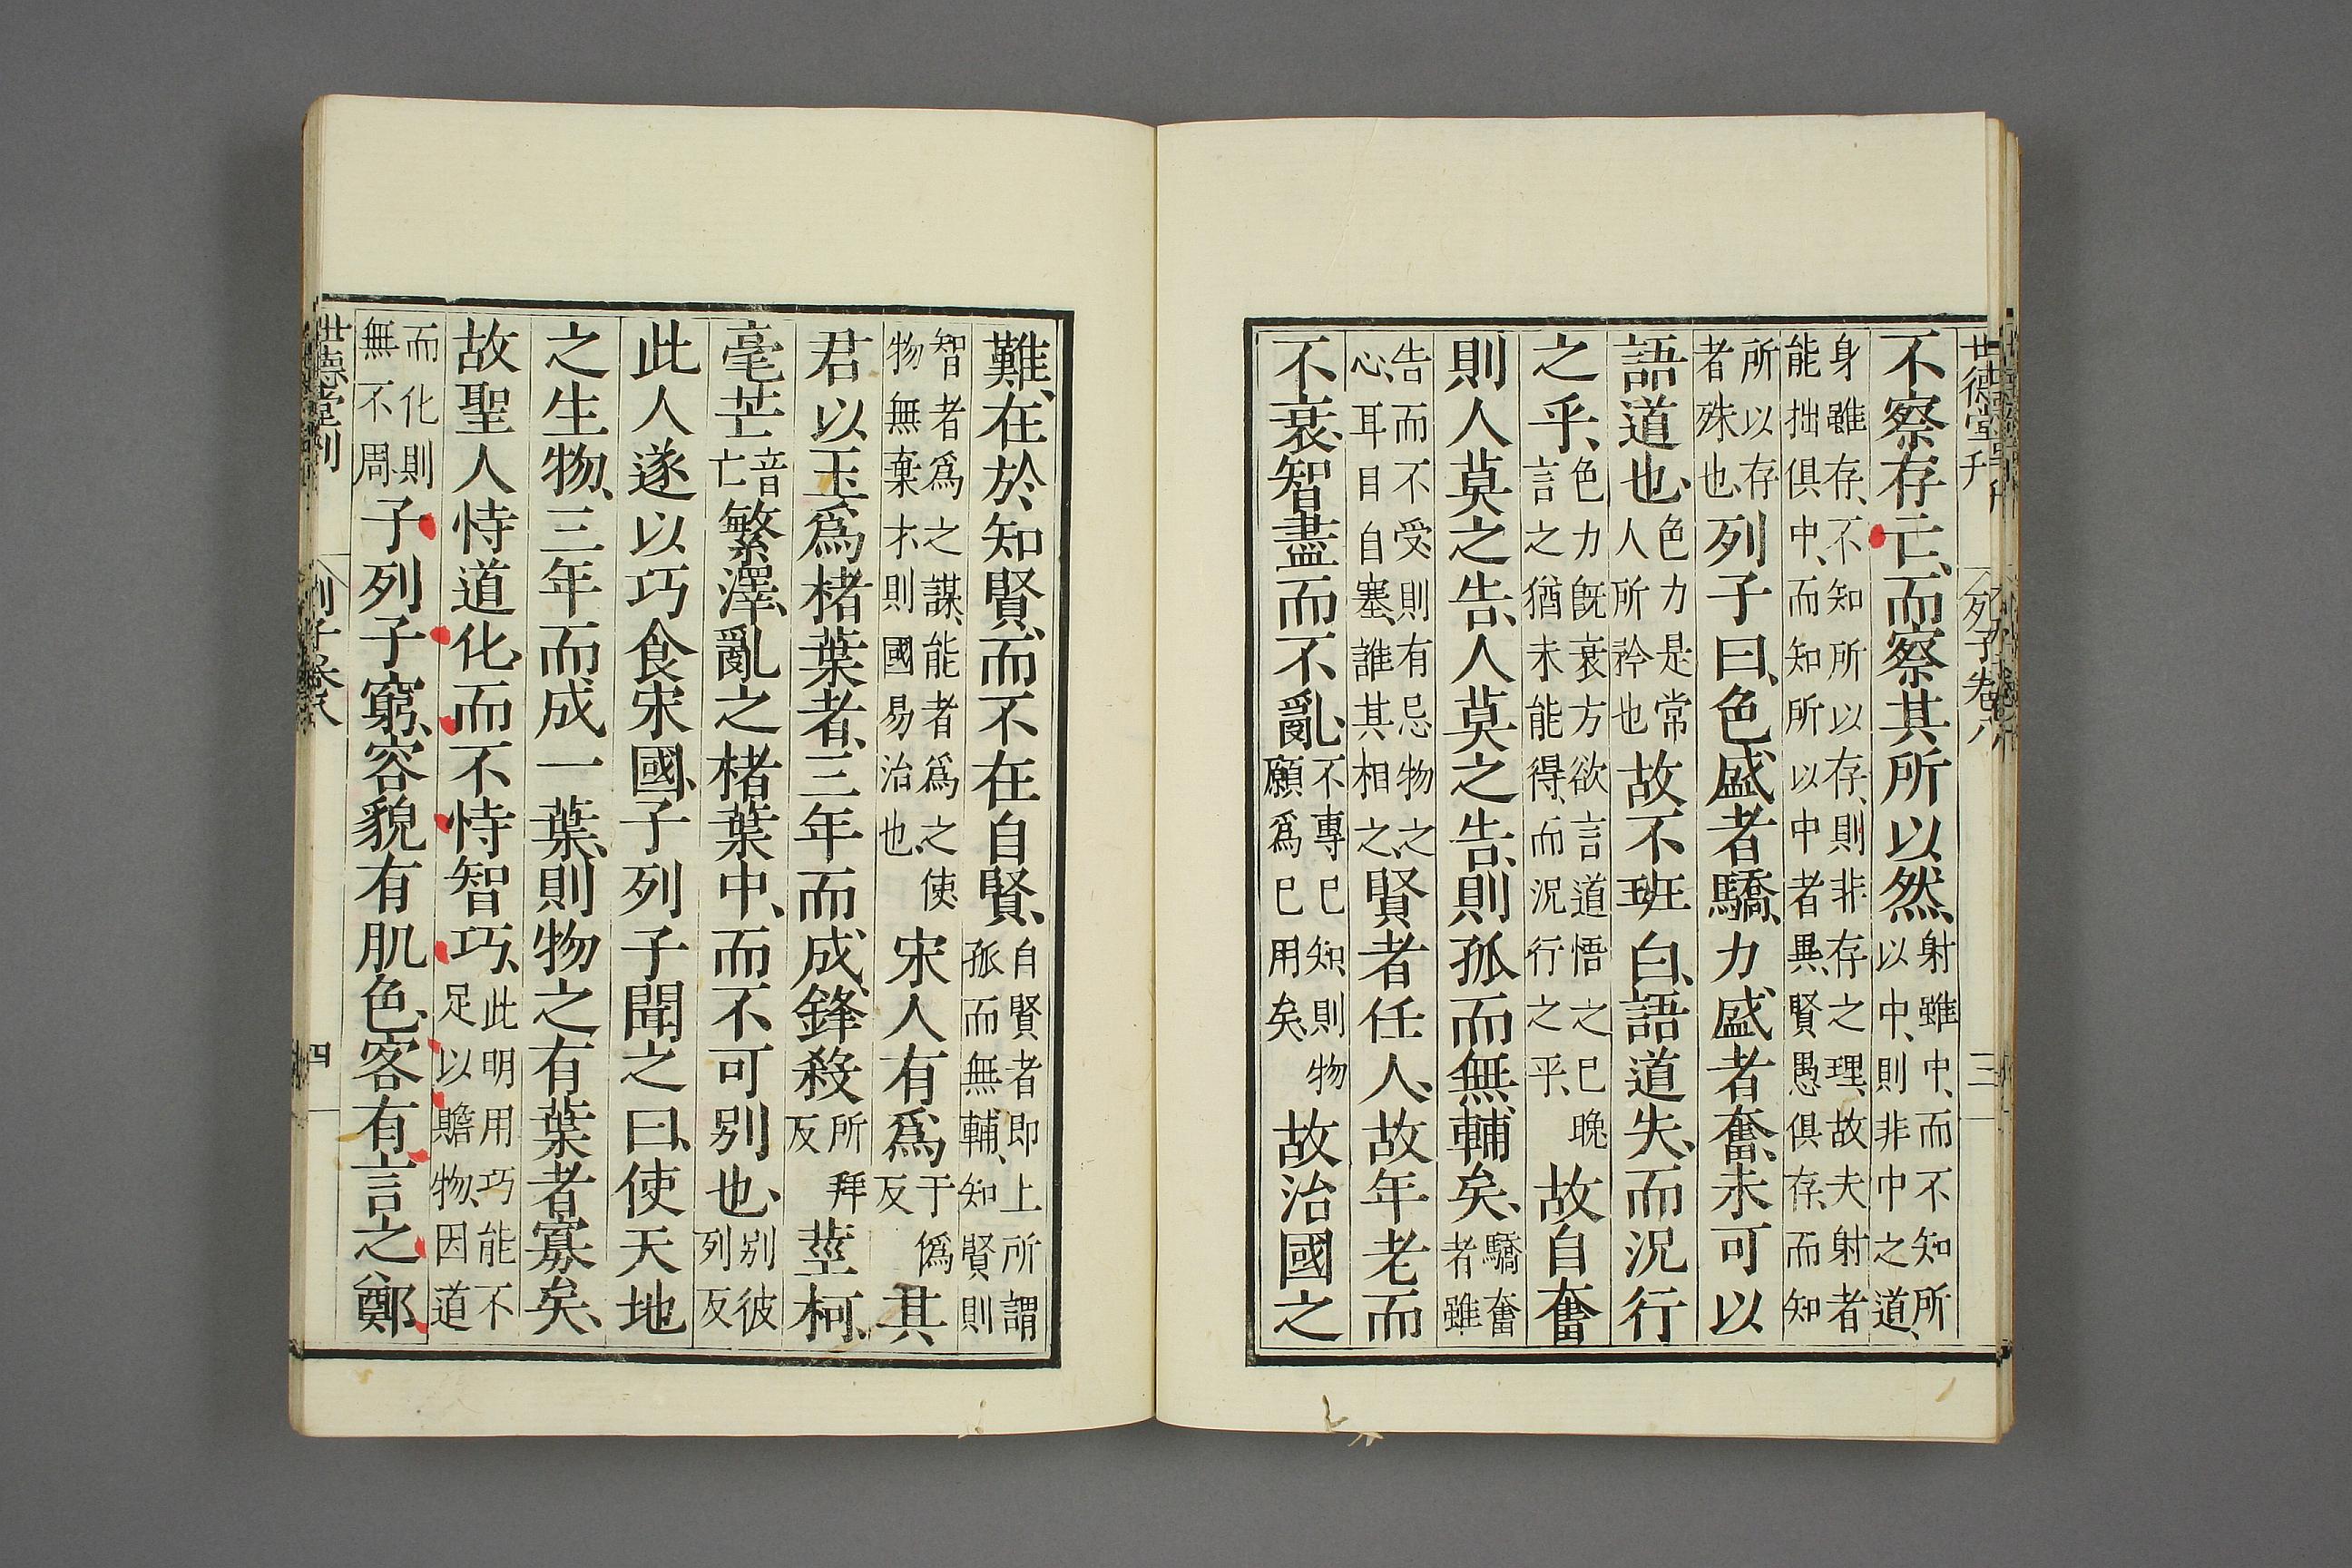 世德堂刊 列子卷八 三
不察存亡、而察其所以然、射雖中、而不知所以中、則非中之道、
身雖存、不知所以存、則非存之理、故夫射者能拙俱中、而知所以中者異、賢愚俱存、而知
所以存者殊也、列子曰、色盛者驕、力盛者奮、未可以
語道也、色力是常人所矜也故不班白、語道失、而況行
之乎、色力旣衰方欲言道悟之已晚言之猶未能得、而況行之乎、故自奮
則人莫之告、人莫之告、則孤而無輔矣、驕奮者雖
告而不受則有忌物之心、耳目自塞、誰其相之、賢者任人、故年老而
不衰、智盡而不亂、不專已知、則物願爲已用矣、故治國之
難、在於知賢、而不在自賢、自賢者即上所謂孤而無輔、知賢則
智者爲之謀、能者爲之使、物無棄才則國易治也、宋人有爲于僞反其
君以玉爲楮葉者、三年而成、鋒殺所拜反莖柯、
毫芒音亡繁澤、亂之楮葉中、而不可别也、别彼列反
此人遂以巧食宋國、子列子聞之曰、使天地
之生物、三年而成一葉、則物之有葉者寡矣、
故聖人恃道化、而不恃智巧、此明用巧能不足以贍物、因道
而化則無不周子列子窮、容貌有肌色、客有言之鄭
世德堂刊 列子卷八 四